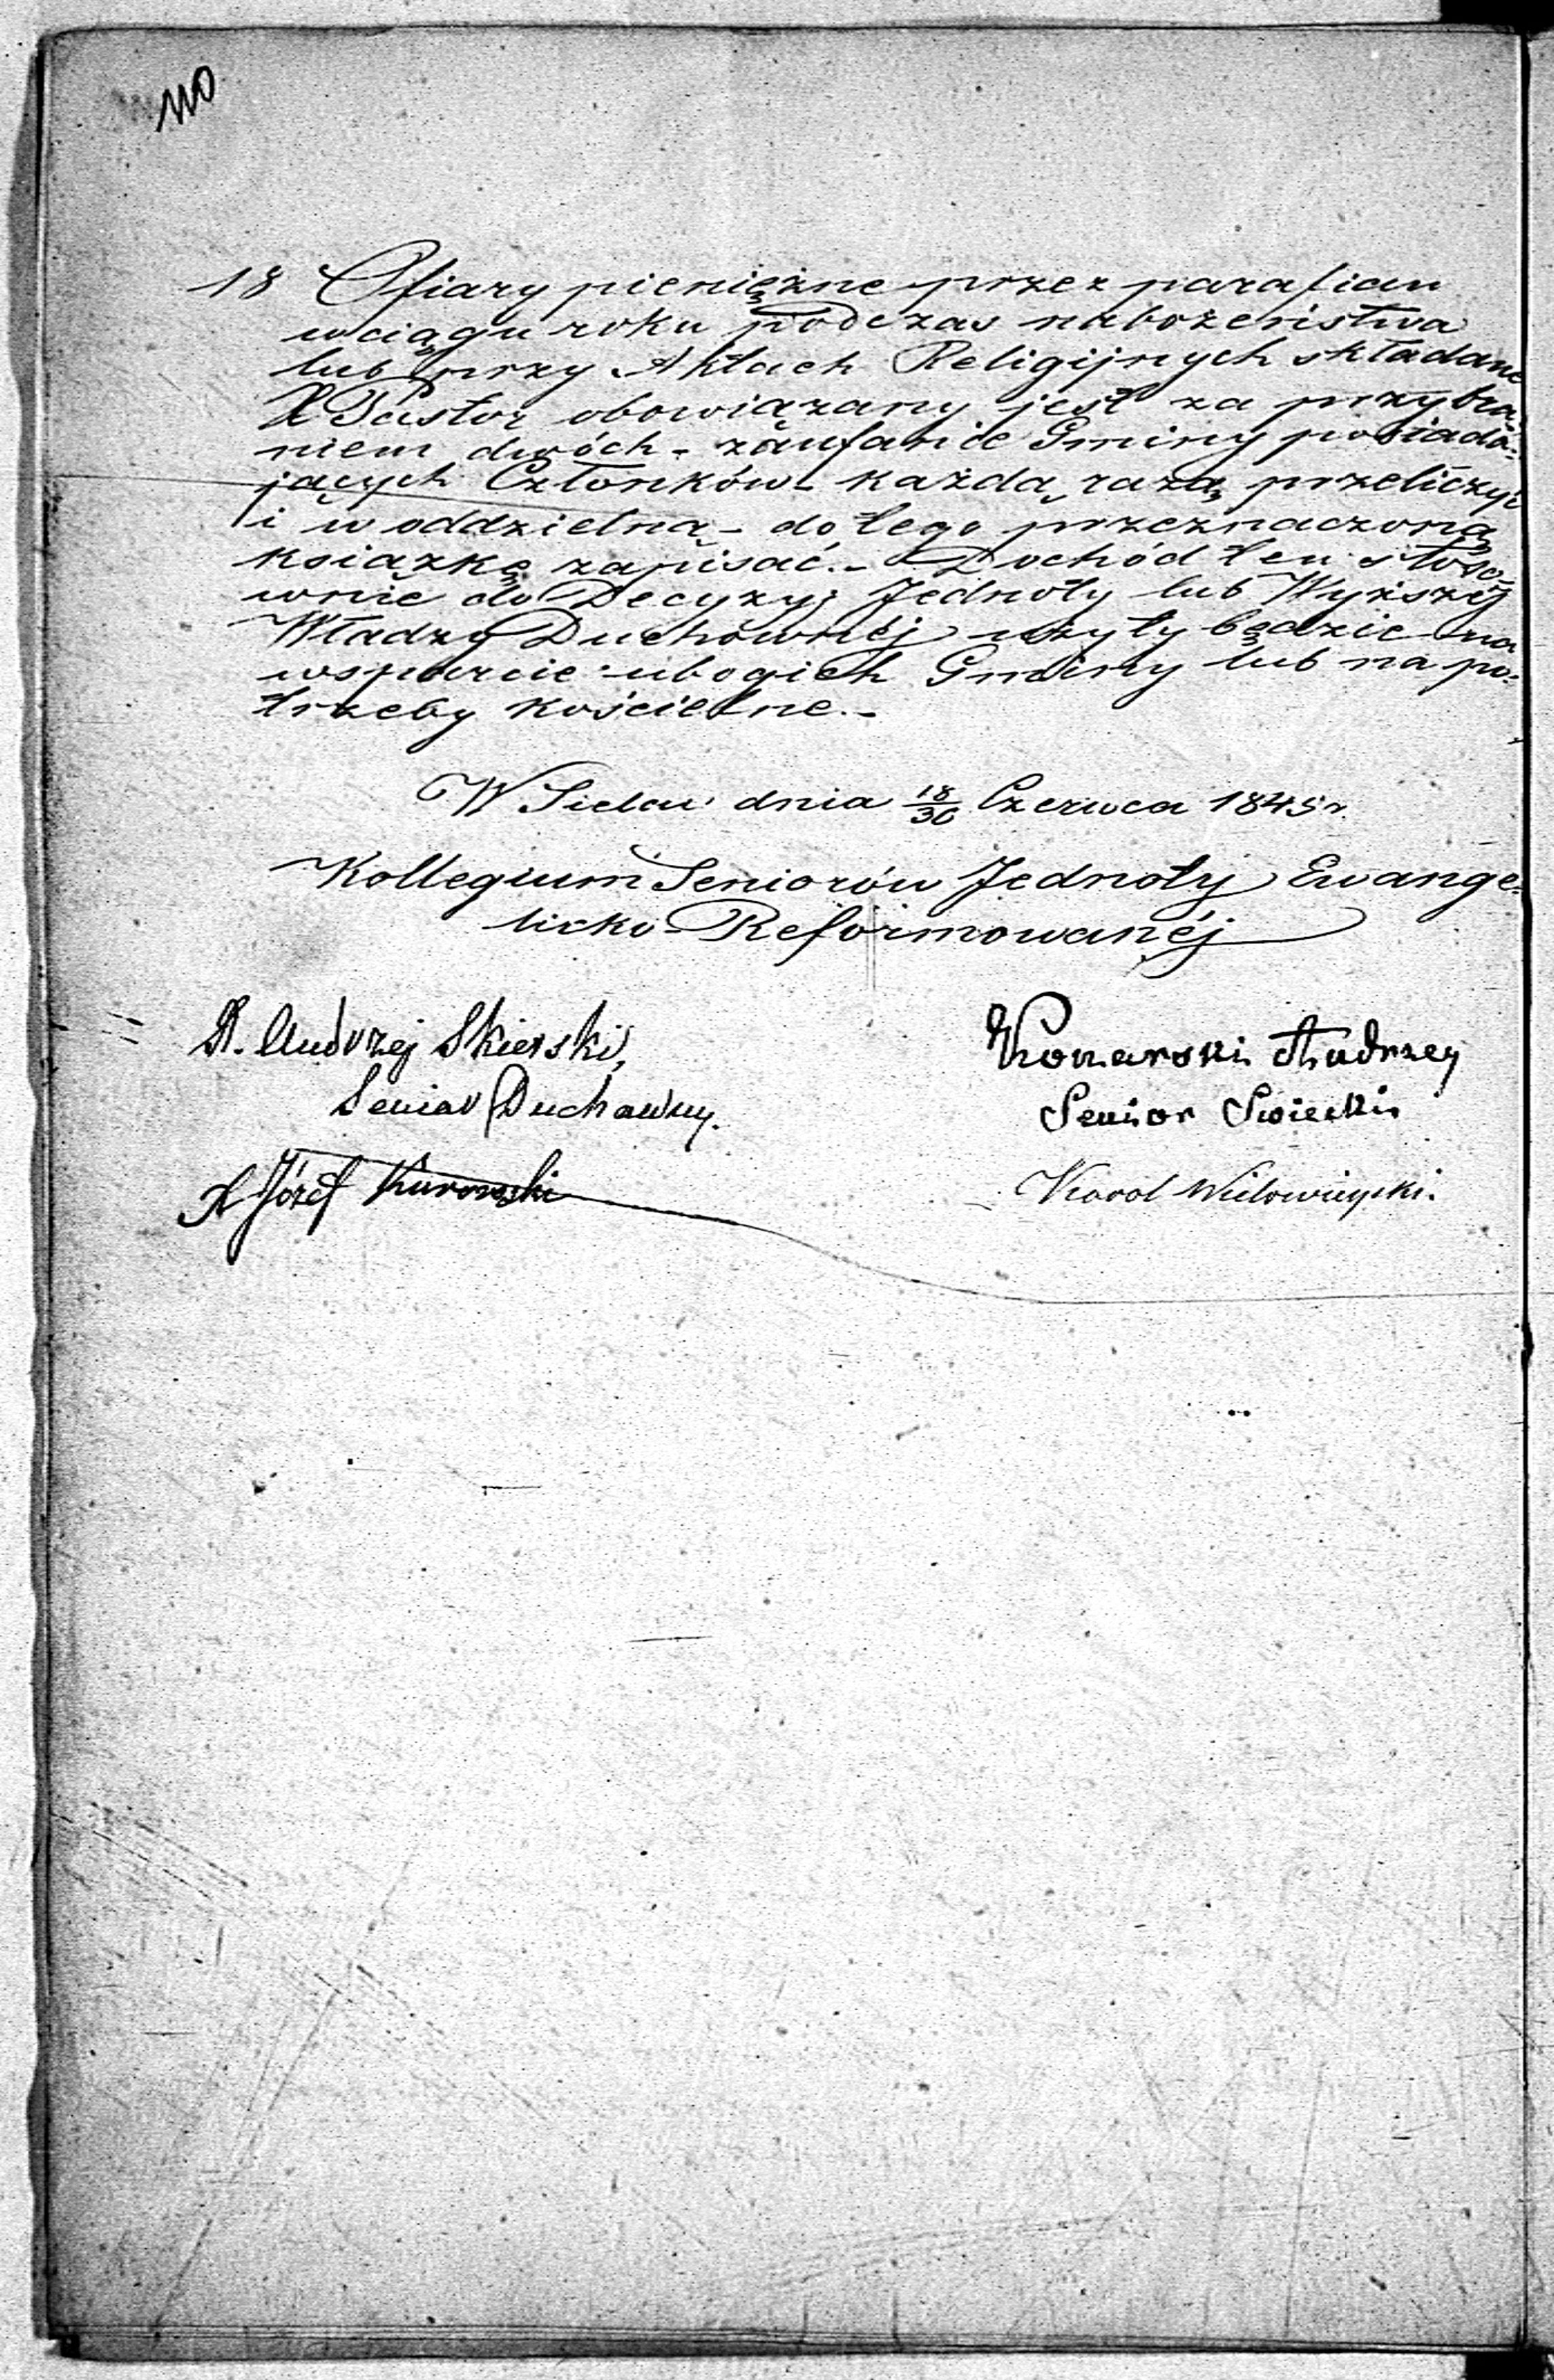 110
18 Ofiary pieniężne przez parafian
w ciągu roku podczas nabożeństwa
lub przy Aktach Religijnych składane
X Pastor obowiązany jest za przybra-
niem dwóch - zaufanie Gminy posiada=
jących Członków każdą razą przeliczyć
i w oddzielną - do tego przeznaczoną
książkę zapisać. - Dochód ten stoso=
wnie do Decyzyj Jednoty lub Wyższéj
Władzy Duchownéj użyty będzie na
wsparcie ubogich Gminy lub na po=
trzeby kościelne. -
W dnia 18/30 Czerwca 1845 r.
Kollegium Seniorów Jednoty Ewange=
licko-Reformowanéj
X. Andrzej Skierski,
Senior Duchowny.
Konarski Andrzey
Senior Swiecki
X Józef Kurowski
Karol